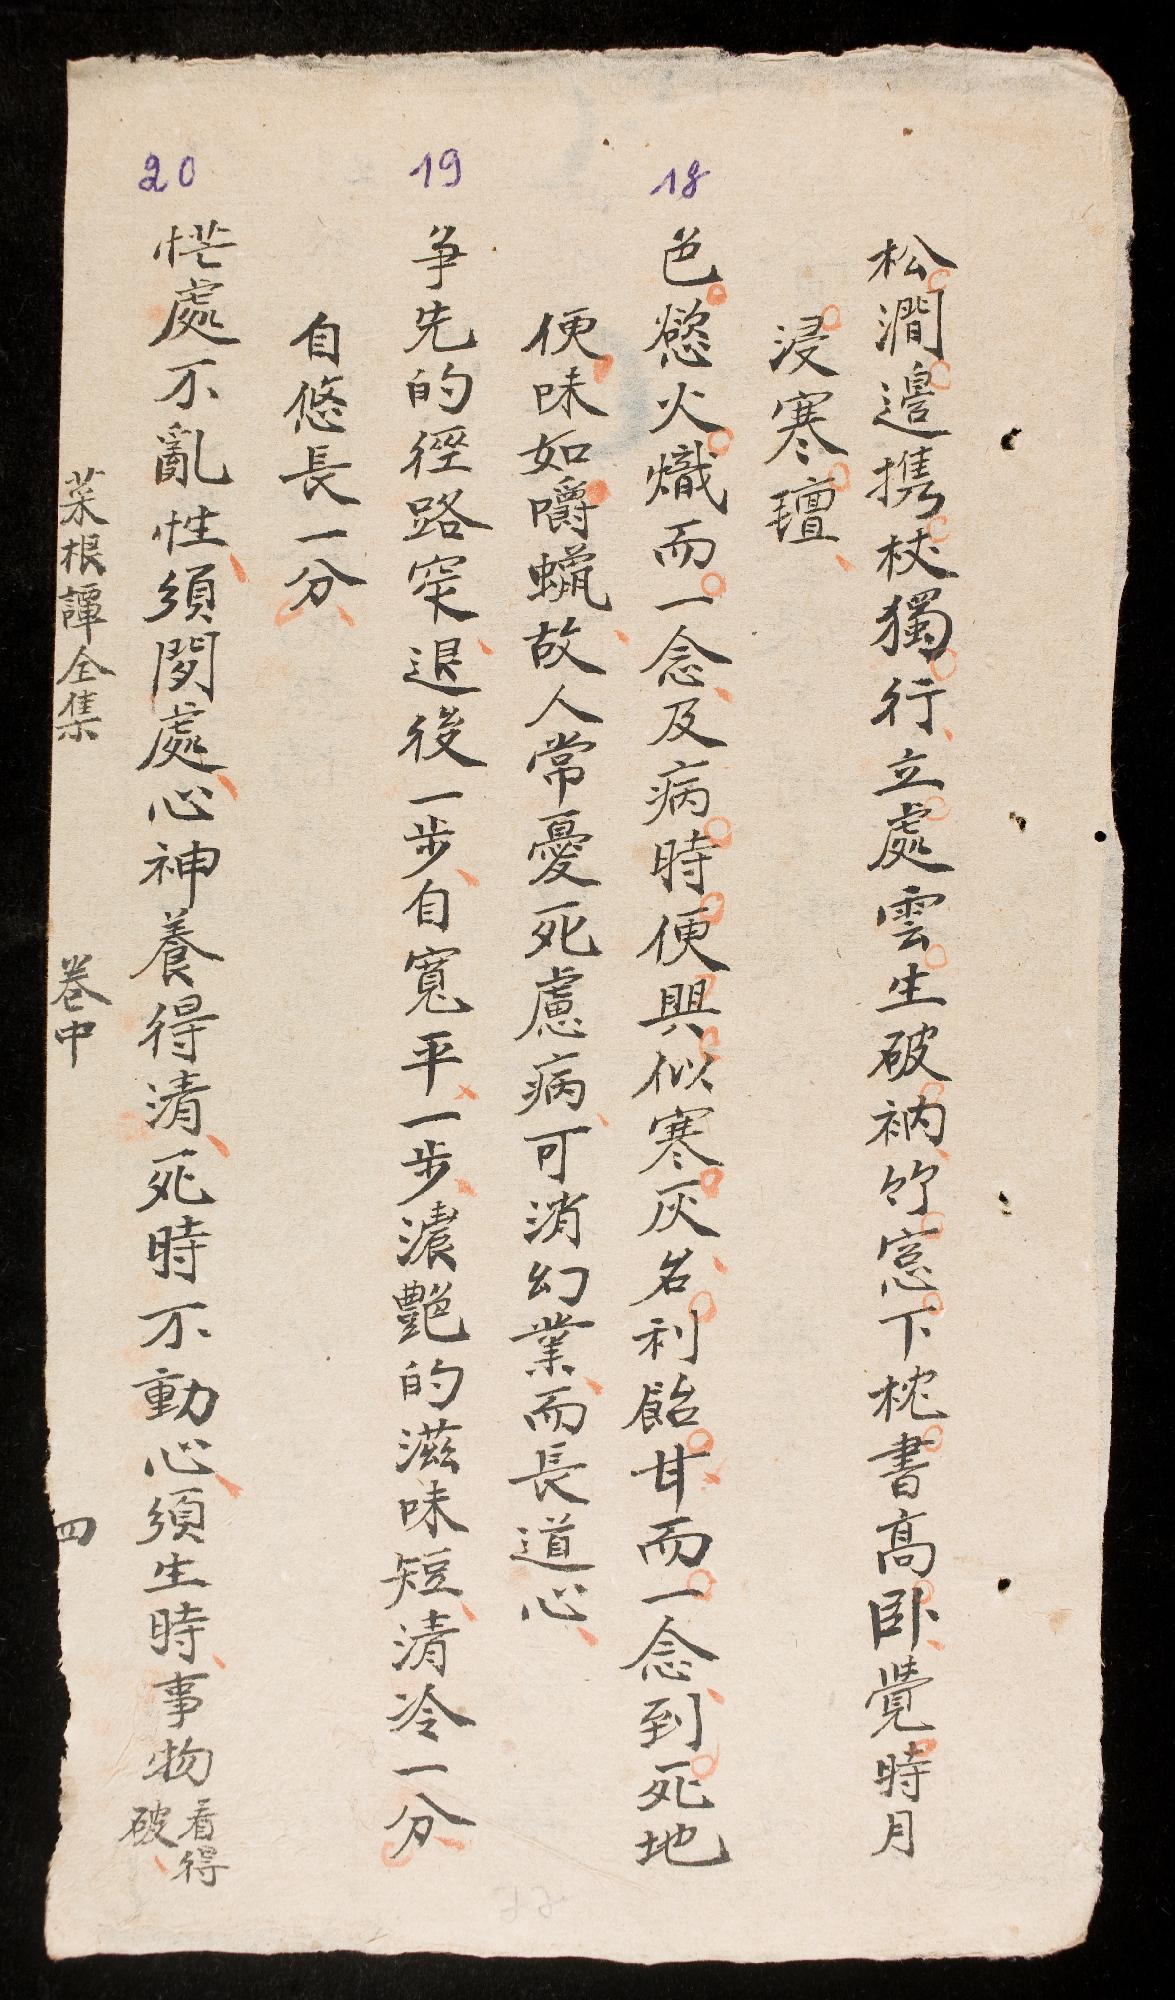 松澗邊携杖獨行立處雲生破衲竹窓下枕書高卧覺時月
浸寒氊
18
色慾火熾而一念及病時便興似寒灰名利飴甘而一念到死地
便味如嚼蠟故人常憂死慮病可消幻業而長道心
19
爭先的徑路窄退後一步自寬平一步濃艷的滋味短清冷一分
自悠長一分
20
忙處不亂性須閑處心神養得清死時不動心須生時事物看得破
菜根譚全集 卷中 四